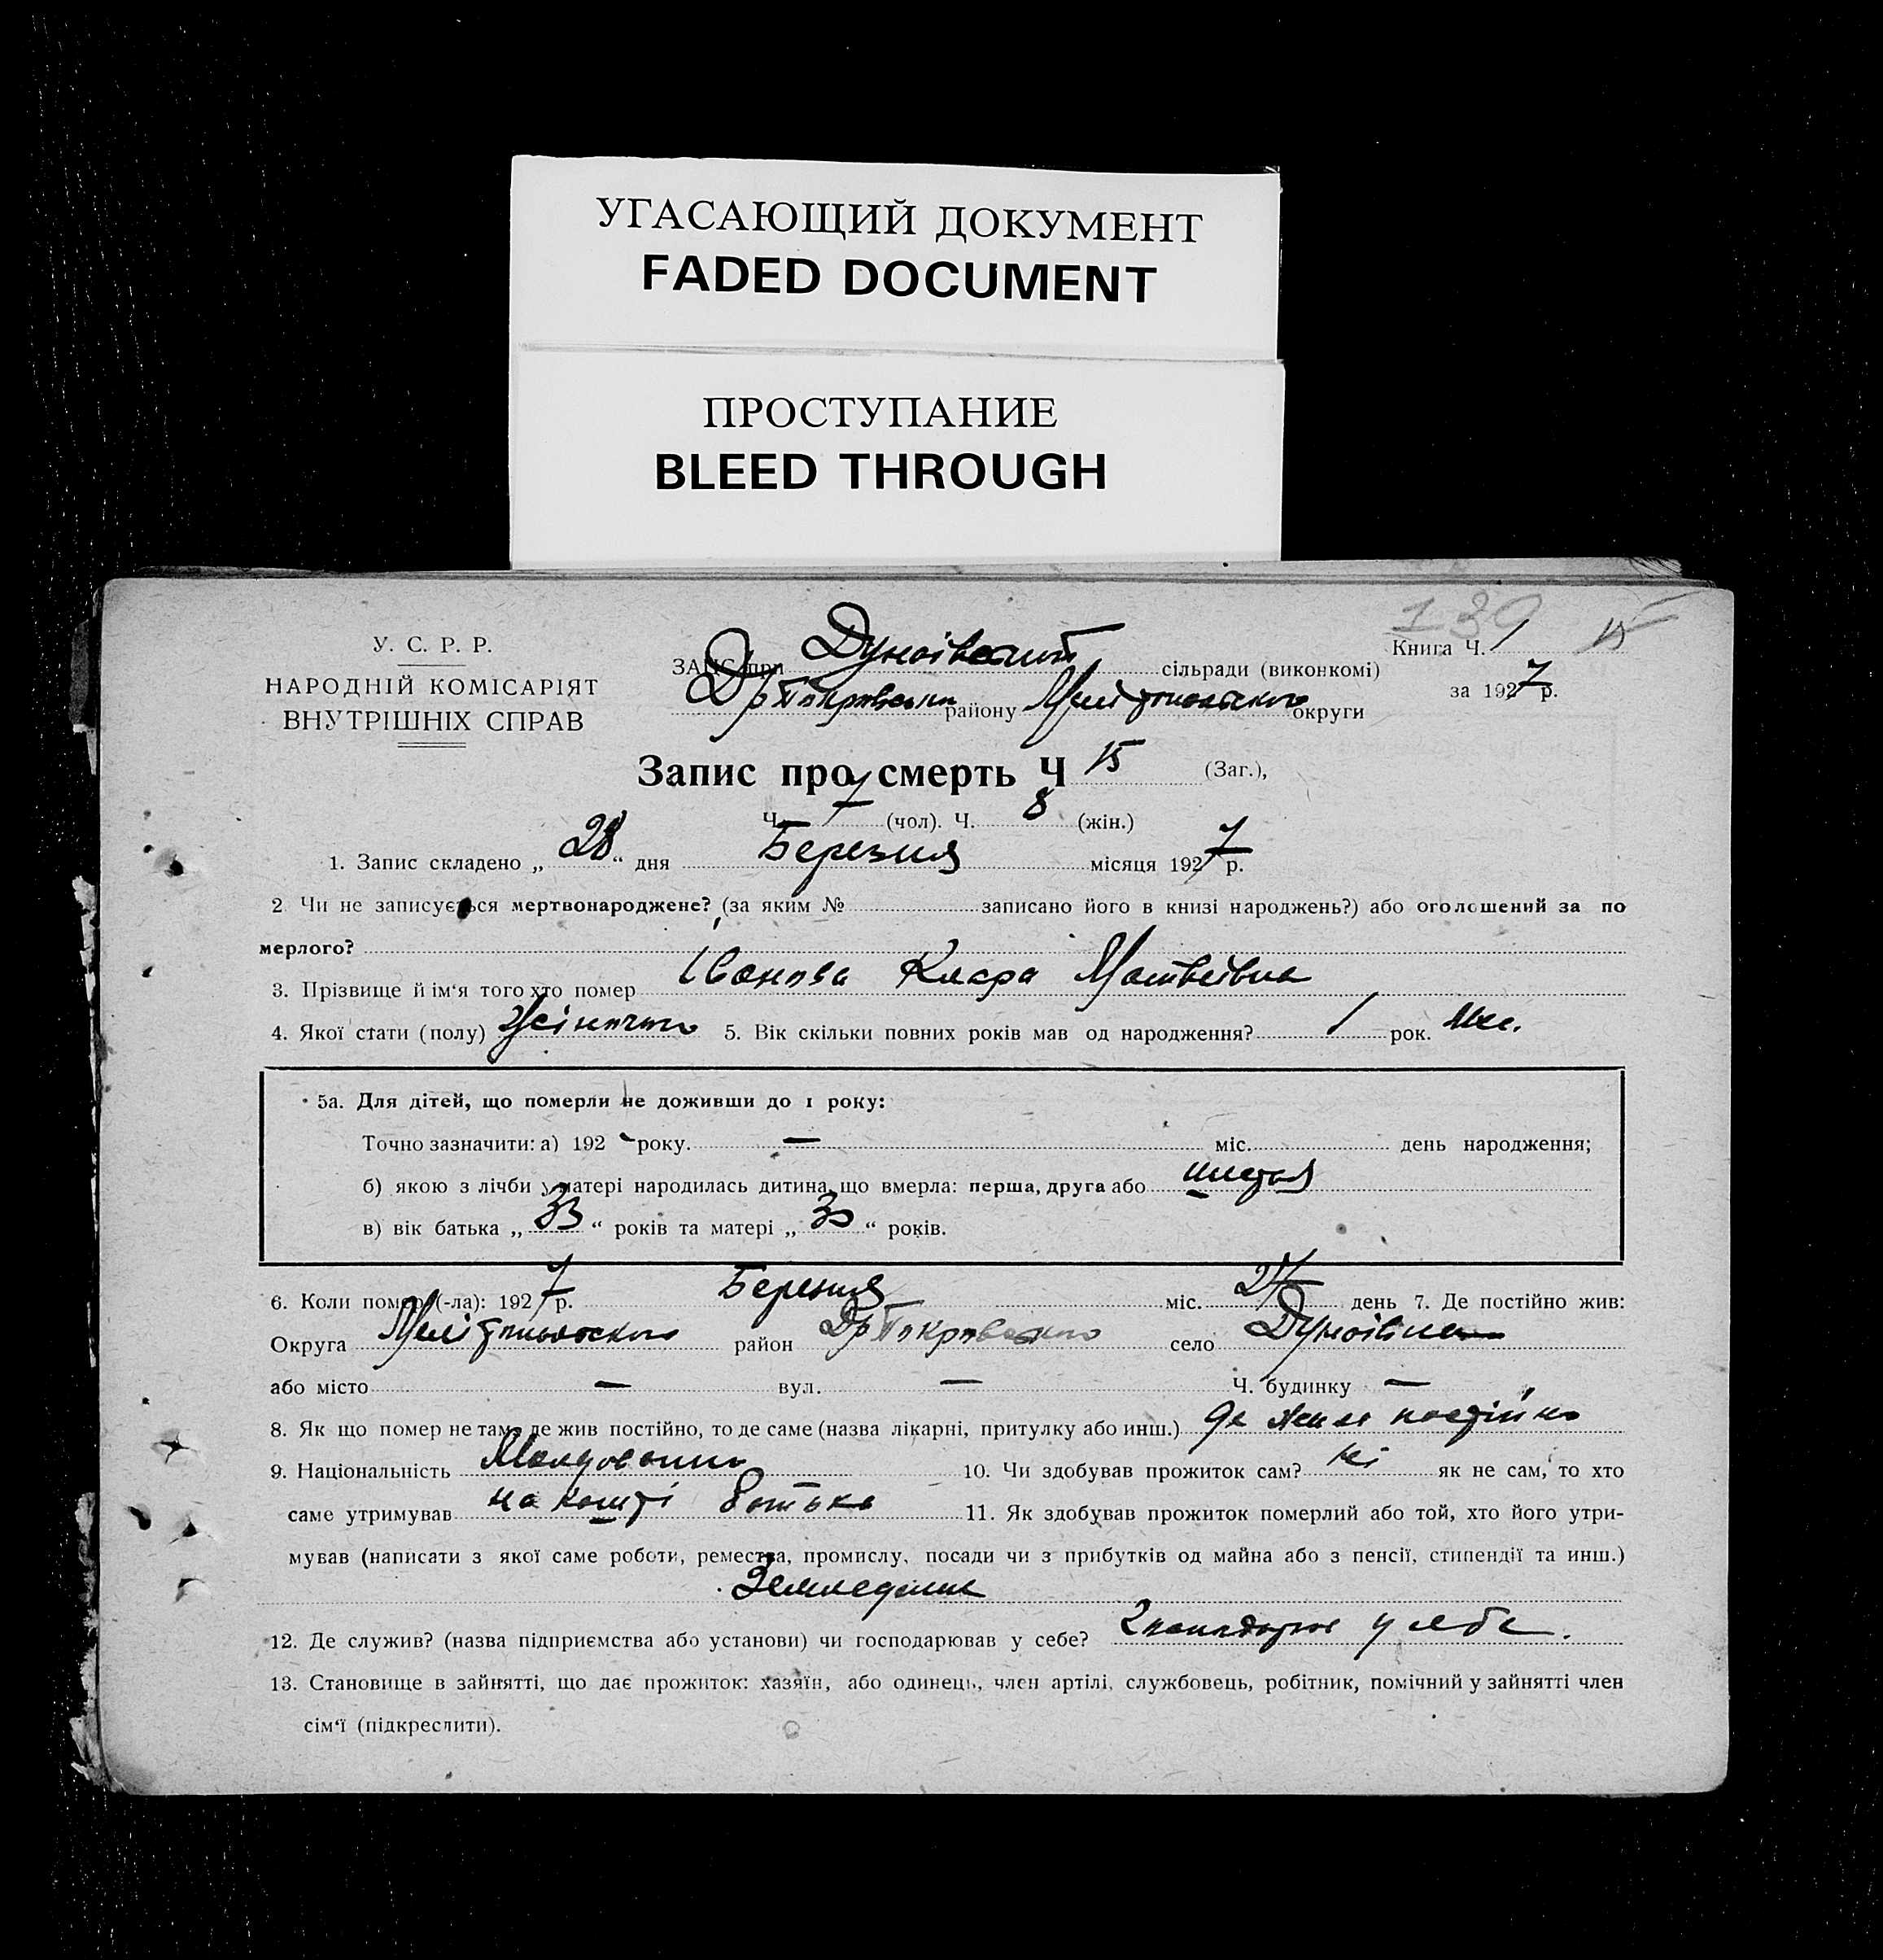 УГАСАЮЩИЙ ДОКУМЕНТ
FADED DOCUMENT
ПРОСТУПАНИЕ
BLEED THROUGH
130 15
У. С. Р. Р.
НАРОДНІЙ КОМІСАРІЯТ
ВНУТРІШНІХ СПРАВ
Книга Ч. 1
за 1927 р.
ЗАГС при сільради (виконкомі)
району Мелітопольского округи
Запис про смерть Ч 15 (Заг.),
Ч. 7 (чол). Ч. 8 (жін.)
1. Запис складено „ 28 “ дня Березня місяця 1927 р.
2 Чи не записується мертвонароджене? (за яким № записано його в книзі народжень?) або оголошений за по
мерлого?
3. Прізвище й ім‘я того хто помер Іванова Клара Матвеівна
4. Якої стати (полу) Жіночого 5. Вік скільки повних років мав од народження? 1 рок.
5а. Для дітей, що померли не доживши до 1 року:
Точно зазначити: а) 192 - року. — міс. день народження;
б) якою з лічби у матері народилась дитина, що вмерла: перша, друга або шестая
в) вік батька „ 33 “ років та матері „ 30 “ років.
6. Коли помер (-ла): 1927 р. Березня міс. 27 день 7. Де постійно жив:
Округа Мелітопольского район Др Покровского село Дунаівка
або місто — вул. — Ч. будинку —
8. Як що помер не там, де жив постійно, то де саме (назва лікарні, притулку або инш.) де жила постійно
9. Національність 10. Чи здобував прожиток сам? ні як не сам, то хто
саме утримував на кошті батька 11. Як здобував прожиток померлий або той, хто його утри-
мував (написати з якої саме роботи, ремества, промислу, посади чи з прибутків од майна або з пенсії, стипендії та инш.)
12. Де служив? (назва підприємства або установи) чи господарював у себе? у себе.
13. Становище в зайнятті, що дає прожиток: хазяїн, або одинець, член артілі, службовець, робітник, помічний у зайнятті член
сім‘ї (підкреслити).